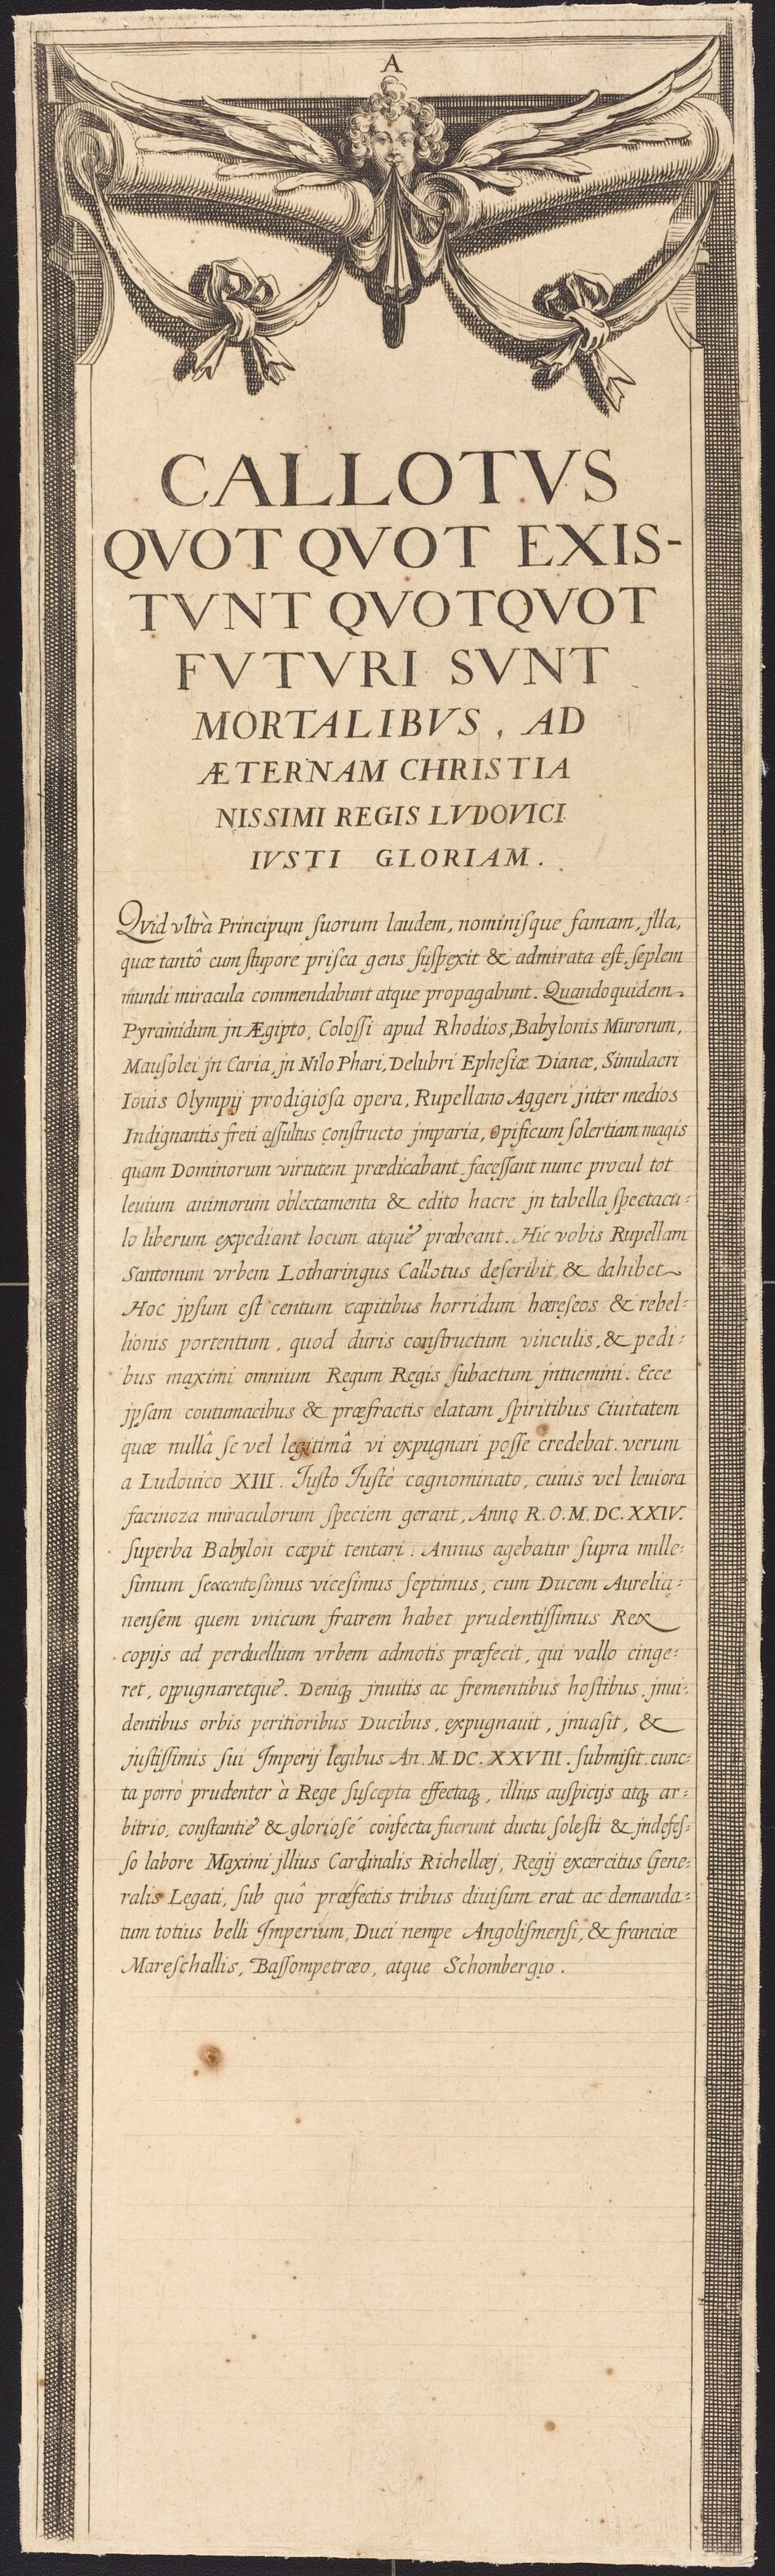 A
CALLOTVS
QVOT QVOT EXIS-
TVNT QVOTQVOT
FVTVRI SVNT
MORTALIBVS, AD
ÆTERNAM CHRISTIA
NISSIMI REGIS LVDOVICI
IVSTI GLORIAM.
Qvid vltrà Principum ſuorum laudem, nominiſque famam, jlla,
quæ tantô cum ſtupore priſca gens ſuſpexit & admirata eſt, ſeptem
mundi miracula commendabunt atque propagabunt. Quandoquidem
Pyramidum jn Ægipto, Coloſſi apud Rhodios, Babylonis Murorum,
Mauſolei jn Caria, jn Nilo Phari, Delubri Epheſiæ Dianæ, Simulacri
Iouis Olympij prodigioſa opera, Rupellano Aggeri jnter medios
Indignantis freti aſſultus conſtructo jmparia, opificum ſolertiam magis
quam Dominorum virtutem prædicabant faceſſant nunc procul tot
leuium animorum oblectamenta & edito hacre jn tabella ſpectacu:
lo liberum expediant locum atquè præbeant. Hic vobis Rupellam
Santonum vrbem Lotharingus Callotus deſcribit & dahibet
Hoc jpſum eſt centum capitibus horridum hæreſeos & rebel:
lionis portentum, quod duris conſtructum vinculis, & pedi:
bus maximi omnium Regum Regis ſubactum jntuemini. Ecce
jpſam coutumacibus & præfractis elatam ſpiritibus Ciuitatem
quæ nullâ ſe vel legitimâ vi expugnari poſſe credebat. verum
a Ludouico XIII. Juſto Juſtè cognominato, cuius vel leuiora
facinoza miraculorum ſpeciem gerant, Anno R.O.M.DC.XXIV.
ſuperba Babylon cæpit tentari. Annus agebatur ſupra mille:
ſimum ſexcenteſimus viceſimus ſeptimus, cum Ducem Aurelia:
nenſem quem vnicum fratrem habet prudentiſſimus Rex
copijs ad perduellium vrbem admotis præfecit, qui vallo cinge:
ret, oppugnaretquè. Deniq; jnuitis ac frementibus hoſtibus, jnui:
dentibus orbis peritioribus Ducibus, expugnauit, jnuaſit, &
juſtiſſimis ſui Imperij legibus An. M.DC.XXVIII. ſubmiſit. cunc:
ta porrò prudenter à Rege ſuſcepta effectaq;, illius auſpicijs atq; ar:
bitrio, conſtantiè & glorioſé confecta fuerunt ductu ſoleſti & jndefeſ:
ſo labore Maximi jllius Cardinalis Richellæj, Regij excercitus Gene:
ralis Legati, ſub quô præfectis tribus diuiſum erat ac demanda:
tum totius belli Imperium, Duci nempe Angoliſmenſi, & franciæ
Mareſchallis, Baſſompetræo, atque Schombergio.